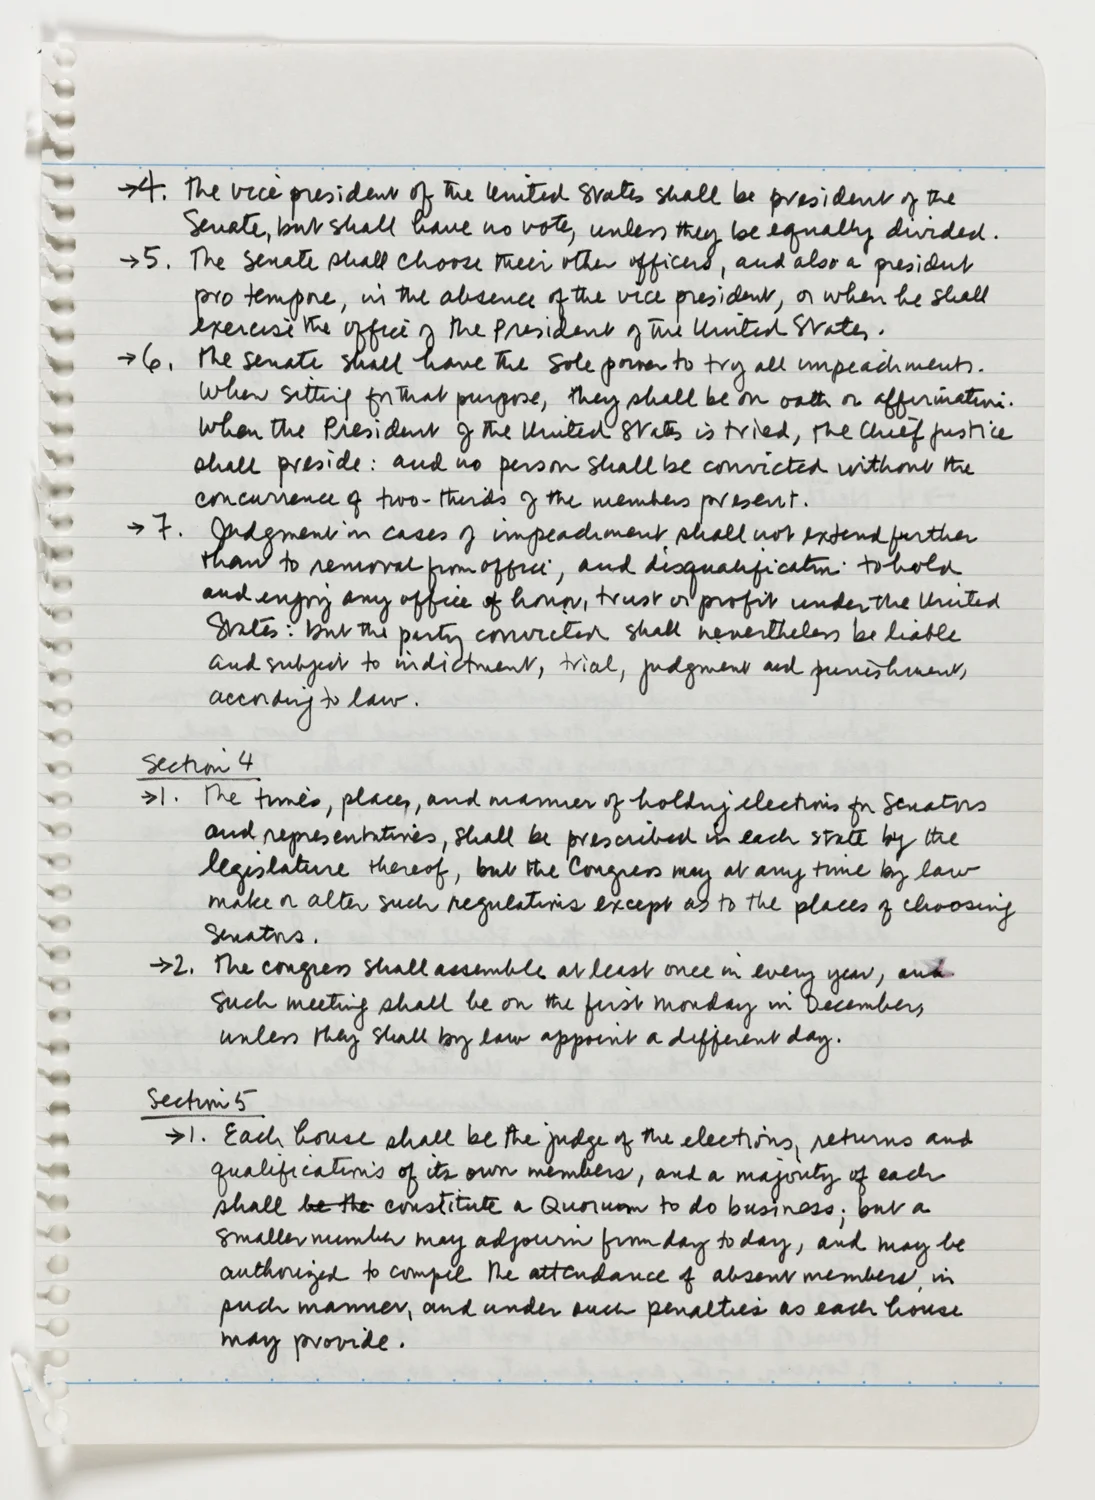 →4. The vice president of the United States shall be president of the
Senate, but shall have no vote, unless they be equally divided.
→5. The Senate shall choose their other officers, and also a president
pro tempore, in the absence of the vice president, or when he shall
exercise the office of the President of the United States.
→6. The Senate shall have the sole power to try all impeachments.
When sitting for that purpose, they shall be on oath or affirmation.
When the President of the United States is tried, the Chief justice
shall preside: and no person shall be convicted without the
concurrence of two-thirds of the members present.
→7. Judgment in cases of impeachment shall not extend further
than to removal from office, and disqualification to hold
and enjoy any office of honor, trust or profit under the United
States: but the party convicted shall nevertheless be liable
and subject to indictment, trial, judgment and punishment,
according to law.
Section 4
→1. The times, places, and manner of holding elections for Senators
and representatives, shall be prescribed in each state by the
legislature thereof, but the Congress may at any time by law
make or alter such regulations except as to the places of choosing
Senators.
→2. The congress shall assemble at least once in every year, and
such meeting shall be on the first Monday in December,
unless they shall by law appoint a different day.
Section 5
→1. Each house shall be the judge of the elections, returns and
qualifications of its own members, and a majority of each
shall be the constitute a Quorum to do business; but a
smaller number may adjourn from day to day, and may be
authorized to compel the attendance of absent members, in
such manner, and under such penalties as each house
may provide.